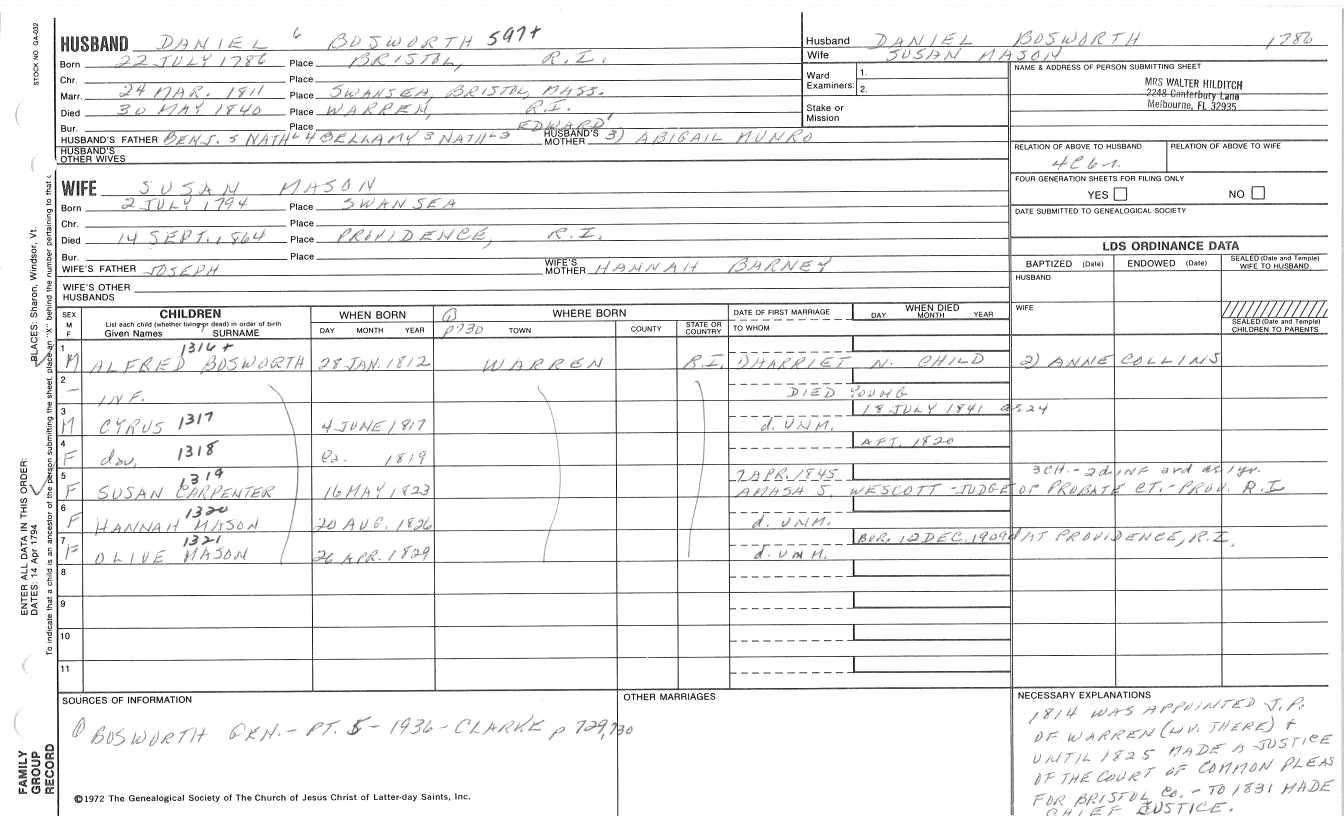 STOCK NO. GA-032
HUSBAND DANIEL 6 BOSWORTH 597+
Born 22 JULY 1786 Place BRISTOL, R.I.
Chr. Place
Marr. 24 MAR. 1811 Place SWANSEA, BRISTOL, MASS.
Died 30 MAY 1840 Place WARREN, R.I.
Bur. Place
HUSBAND'S FATHER BENJ. 5 NATHL 4 BELLAMY 3 NATHL 2 EDWARD 1 HUSBAND'S MOTHER 3) ABIGAIL MUNRO
HUSBAND'S OTHER WIVES
Husband DANIEL BOSWORTH 1786
Wife SUSAN MASON
Ward Examiners: 1.
2.
Stake or Mission
NAME & ADDRESS OF PERSON SUBMITTING SHEET
MRS WALTER HILDITCH
2248 Canterbury Lane
Melbourne, FL 32935
RELATION OF ABOVE TO HUSBAND RELATION OF ABOVE TO WIFE
4C6r.
FOUR GENERATION SHEETS FOR FILING ONLY
YES NO
DATE SUBMITTED TO GENEALOGICAL SOCIETY
WIFE SUSAN MASON
Born 2 JULY 1794 Place SWANSEA
Chr. Place
Died 14 SEPT. 1864 Place PROVIDENCE, R.I.
Bur. Place
WIFE'S FATHER JOSEPH WIFE'S MOTHER HANNAH BARNEY
WIFE'S OTHER HUSBANDS
LDS ORDINANCE DATA
BAPTIZED (Date) ENDOWED (Date) SEALED (Date and Temple) WIFE TO HUSBAND
HUSBAND
WIFE
SEALED (Date and Temple) CHILDREN TO PARENTS
SEX M F
CHILDREN
List each child (whether living or dead) in order of birth
Given Names SURNAME
WHEN BORN
DAY MONTH YEAR
① p730
WHERE BORN
TOWN COUNTY STATE OR COUNTRY
DATE OF FIRST MARRIAGE
TO WHOM
WHEN DIED
DAY MONTH YEAR
1 M ALFRED BOSWORTH 1316+ 28 JAN. 1812 WARREN R.I. 1) HARRIET N. CHILD 2) ANNE COLLINS
2 – INF. DIED YOUNG
3 M CYRUS 1317 4 JUNE 1817 d. UNM. 18 JULY 1841 ae 24
4 F dau. 1318 ca. 1819 AFT. 1820
5 F SUSAN CARPENTER 1319 16 MAY 1823 7 APR. 1845 AMASA S. WESCOTT - JUDGE OF PROBATE CT. - PROV. R.I
3 CH. - 2 d. INF and ae 1 yr.
6 F HANNAH MASON 1320 20 AUG. 1826 d. UNM.
7 F OLIVE MASON 1321 26 APR. 1829 d. UNM. BUR. 12 DEC. 1909 d AT PROVIDENCE, R.I.
8
9
10
11
SOURCES OF INFORMATION
① BOSWORTH GEN. - PT. 5 - 1936 - CLARKE p 729,730
OTHER MARRIAGES
NECESSARY EXPLANATIONS
1814 WAS APPOINTED J.P.
OF WARREN (LIV. THERE) +
UNTIL 1825 MADE A JUSTICE
OF THE COURT OF COMMON PLEAS
FOR BRISTOL Co. - TO 1831 MADE
CHIEF JUSTICE.
©1972 The Genealogical Society of The Church of Jesus Christ of Latter-day Saints, Inc.
FAMILY GROUP RECORD
ENTER ALL DATA IN THIS ORDER:
DATES: 14 Apr 1794
PLACES: Sharon, Windsor, Vt.
To indicate that a child is an ancestor of the person submitting the sheet, place an "X" behind the number pertaining to that